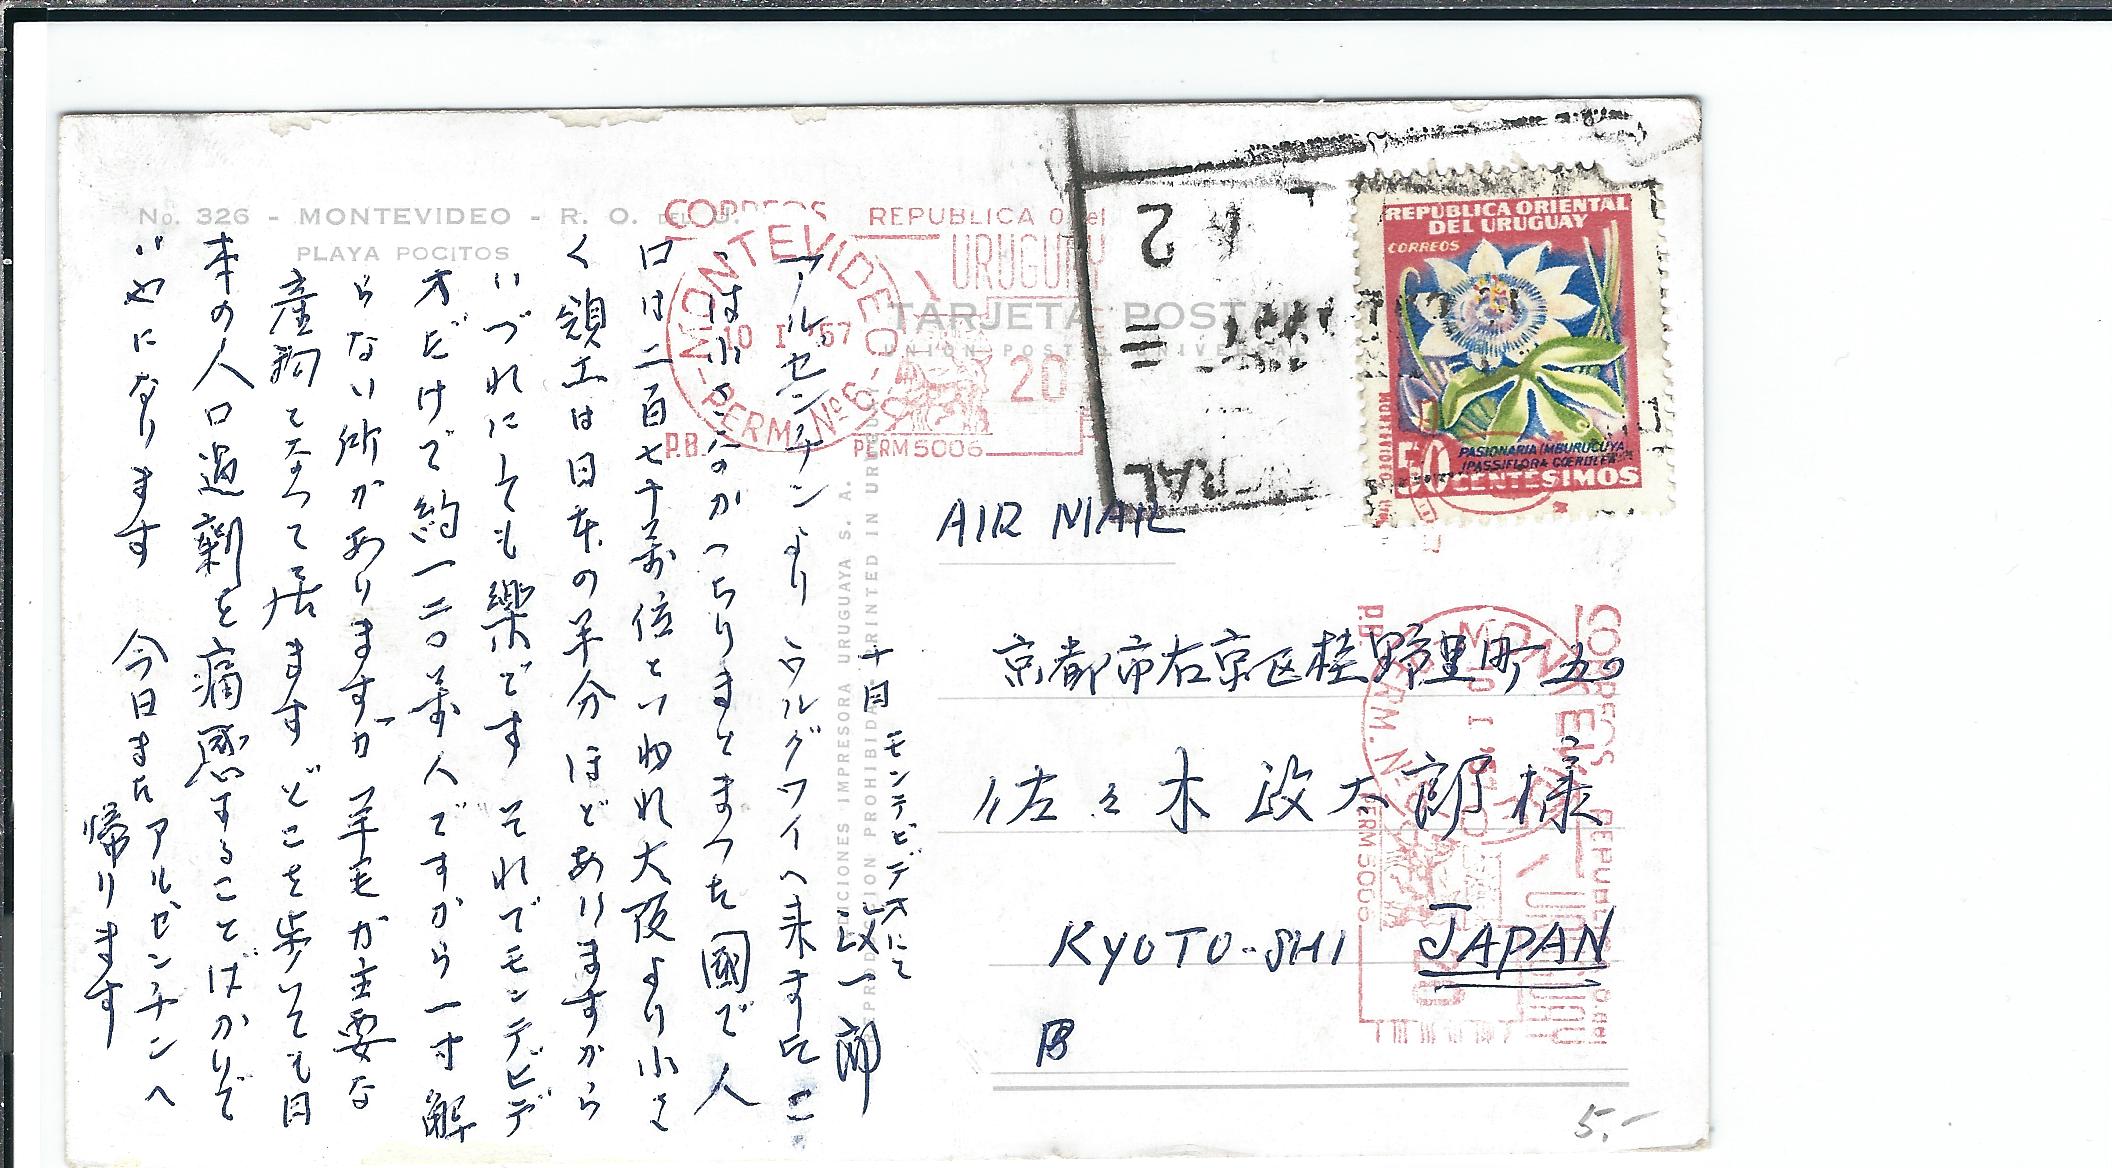 No. 326 - MONTEVIDEO - R. O. DEL U.
PLAYA POCITOS
CORREOS REPUBLICA O. del
URUGUAY
MONTEVIDEO
10 I 57
PERM. Nº 6
20
P.B. PERM 5006
TARJETA POSTAL
UNION POSTAL UNIVERSAL
REPÚBLICA ORIENTAL
DEL URUGUAY
CORREOS
PASIONARIA (MBURUCUYA)
(PASSIFLORA COERULEA)
50 CENTESIMOS
EDICIONES IMPRESORA URUGUAYA S. A.
REPRODUCCION PROHIBIDA - PRINTED IN URUGUAY
AIR MAIL
京都市右京区桂野里町五〇
佐々木政太郎様
KYOTO-SHI JAPAN
十日 モンテビデオにて
政一郎
アルゼンチンよりウルグワイへ来ましたこ
こは小さいのかっちりまとまった國で人
口は二百七十萬位といわれ大阪より小さ
く領土は日本の半分ほどありますから
いづれにしても樂です それでモンテビデ
オだけで約一二〇萬人ですから一寸解
らない所がありますが羊毛が主要な
産物となって居ます どこを歩いても日
本の人口過剰を痛感することばかりで
いやになります 今日またアルゼンチンへ
帰ります
CORREOS REPUBLICA O. del
URUGUAY
MONTEVIDEO
10 I 57
PERM. Nº 6
20
P.B. PERM 5006
5.-